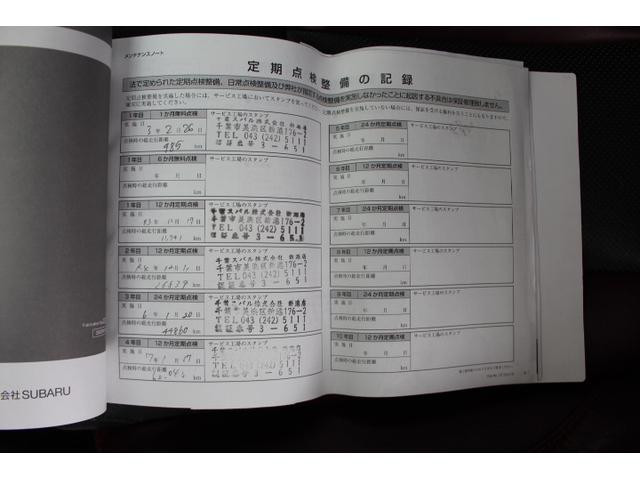 メンテナンスノート
定期点検整備の記録
法で定められた定期点検整備、日常点検整備及び弊社が指定する点検整備を実施しなかったことに起因する不具合は保証修理致しません。
1年目 1か月無料点検
サービス工場のスタンプ
実施日
3年2月26日
点検時の総走行距離
985 km
千葉スバル株式会社 新港店
千葉市美浜区新港176-2
TEL 043 (242) 5111
認証番号 3-651
1年目 6か月無料点検
サービス工場のスタンプ
実施日
年 月 日
点検時の総走行距離
km
1年目 12か月定期点検
サービス工場のスタンプ
実施日
点検時の総走行距離
km
千葉スバル株式会社 新港店
千葉市美浜区新港176-2
TEL 043 (242) 5111
認証番号 3-651
2年目 12か月定期点検
サービス工場のスタンプ
実施日
点検時の総走行距離
km
千葉スバル株式会社 新港店
千葉市美浜区新港176-2
TEL 043 (242) 5111
認証番号 3-651
3年目 24か月定期点検
サービス工場のスタンプ
実施日
6年1月20日
点検時の総走行距離
km
千葉スバル株式会社 新港店
千葉市美浜区新港176-2
TEL 043 (242) 5111
認証番号 3-651
4年目 12か月定期点検
サービス工場のスタンプ
実施日
点検時の総走行距離
km
千葉スバル株式会社 新港店
千葉市美浜区新港176-2
TEL 043 (242) 5111
認証番号 3-651
5年目 24か月定期点検
サービス工場のスタンプ
実施日
年 月 日
点検時の総走行距離
km
6年目 12か月定期点検
サービス工場のスタンプ
実施日
年 月 日
点検時の総走行距離
km
7年目 24か月定期点検
サービス工場のスタンプ
実施日
年 月 日
点検時の総走行距離
km
8年目 12か月定期点検
サービス工場のスタンプ
実施日
年 月 日
点検時の総走行距離
km
9年目 24か月定期点検
サービス工場のスタンプ
実施日
年 月 日
点検時の総走行距離
km
10年目 12か月定期点検
サービス工場のスタンプ
実施日
年 月 日
点検時の総走行距離
km
会社SUBARU